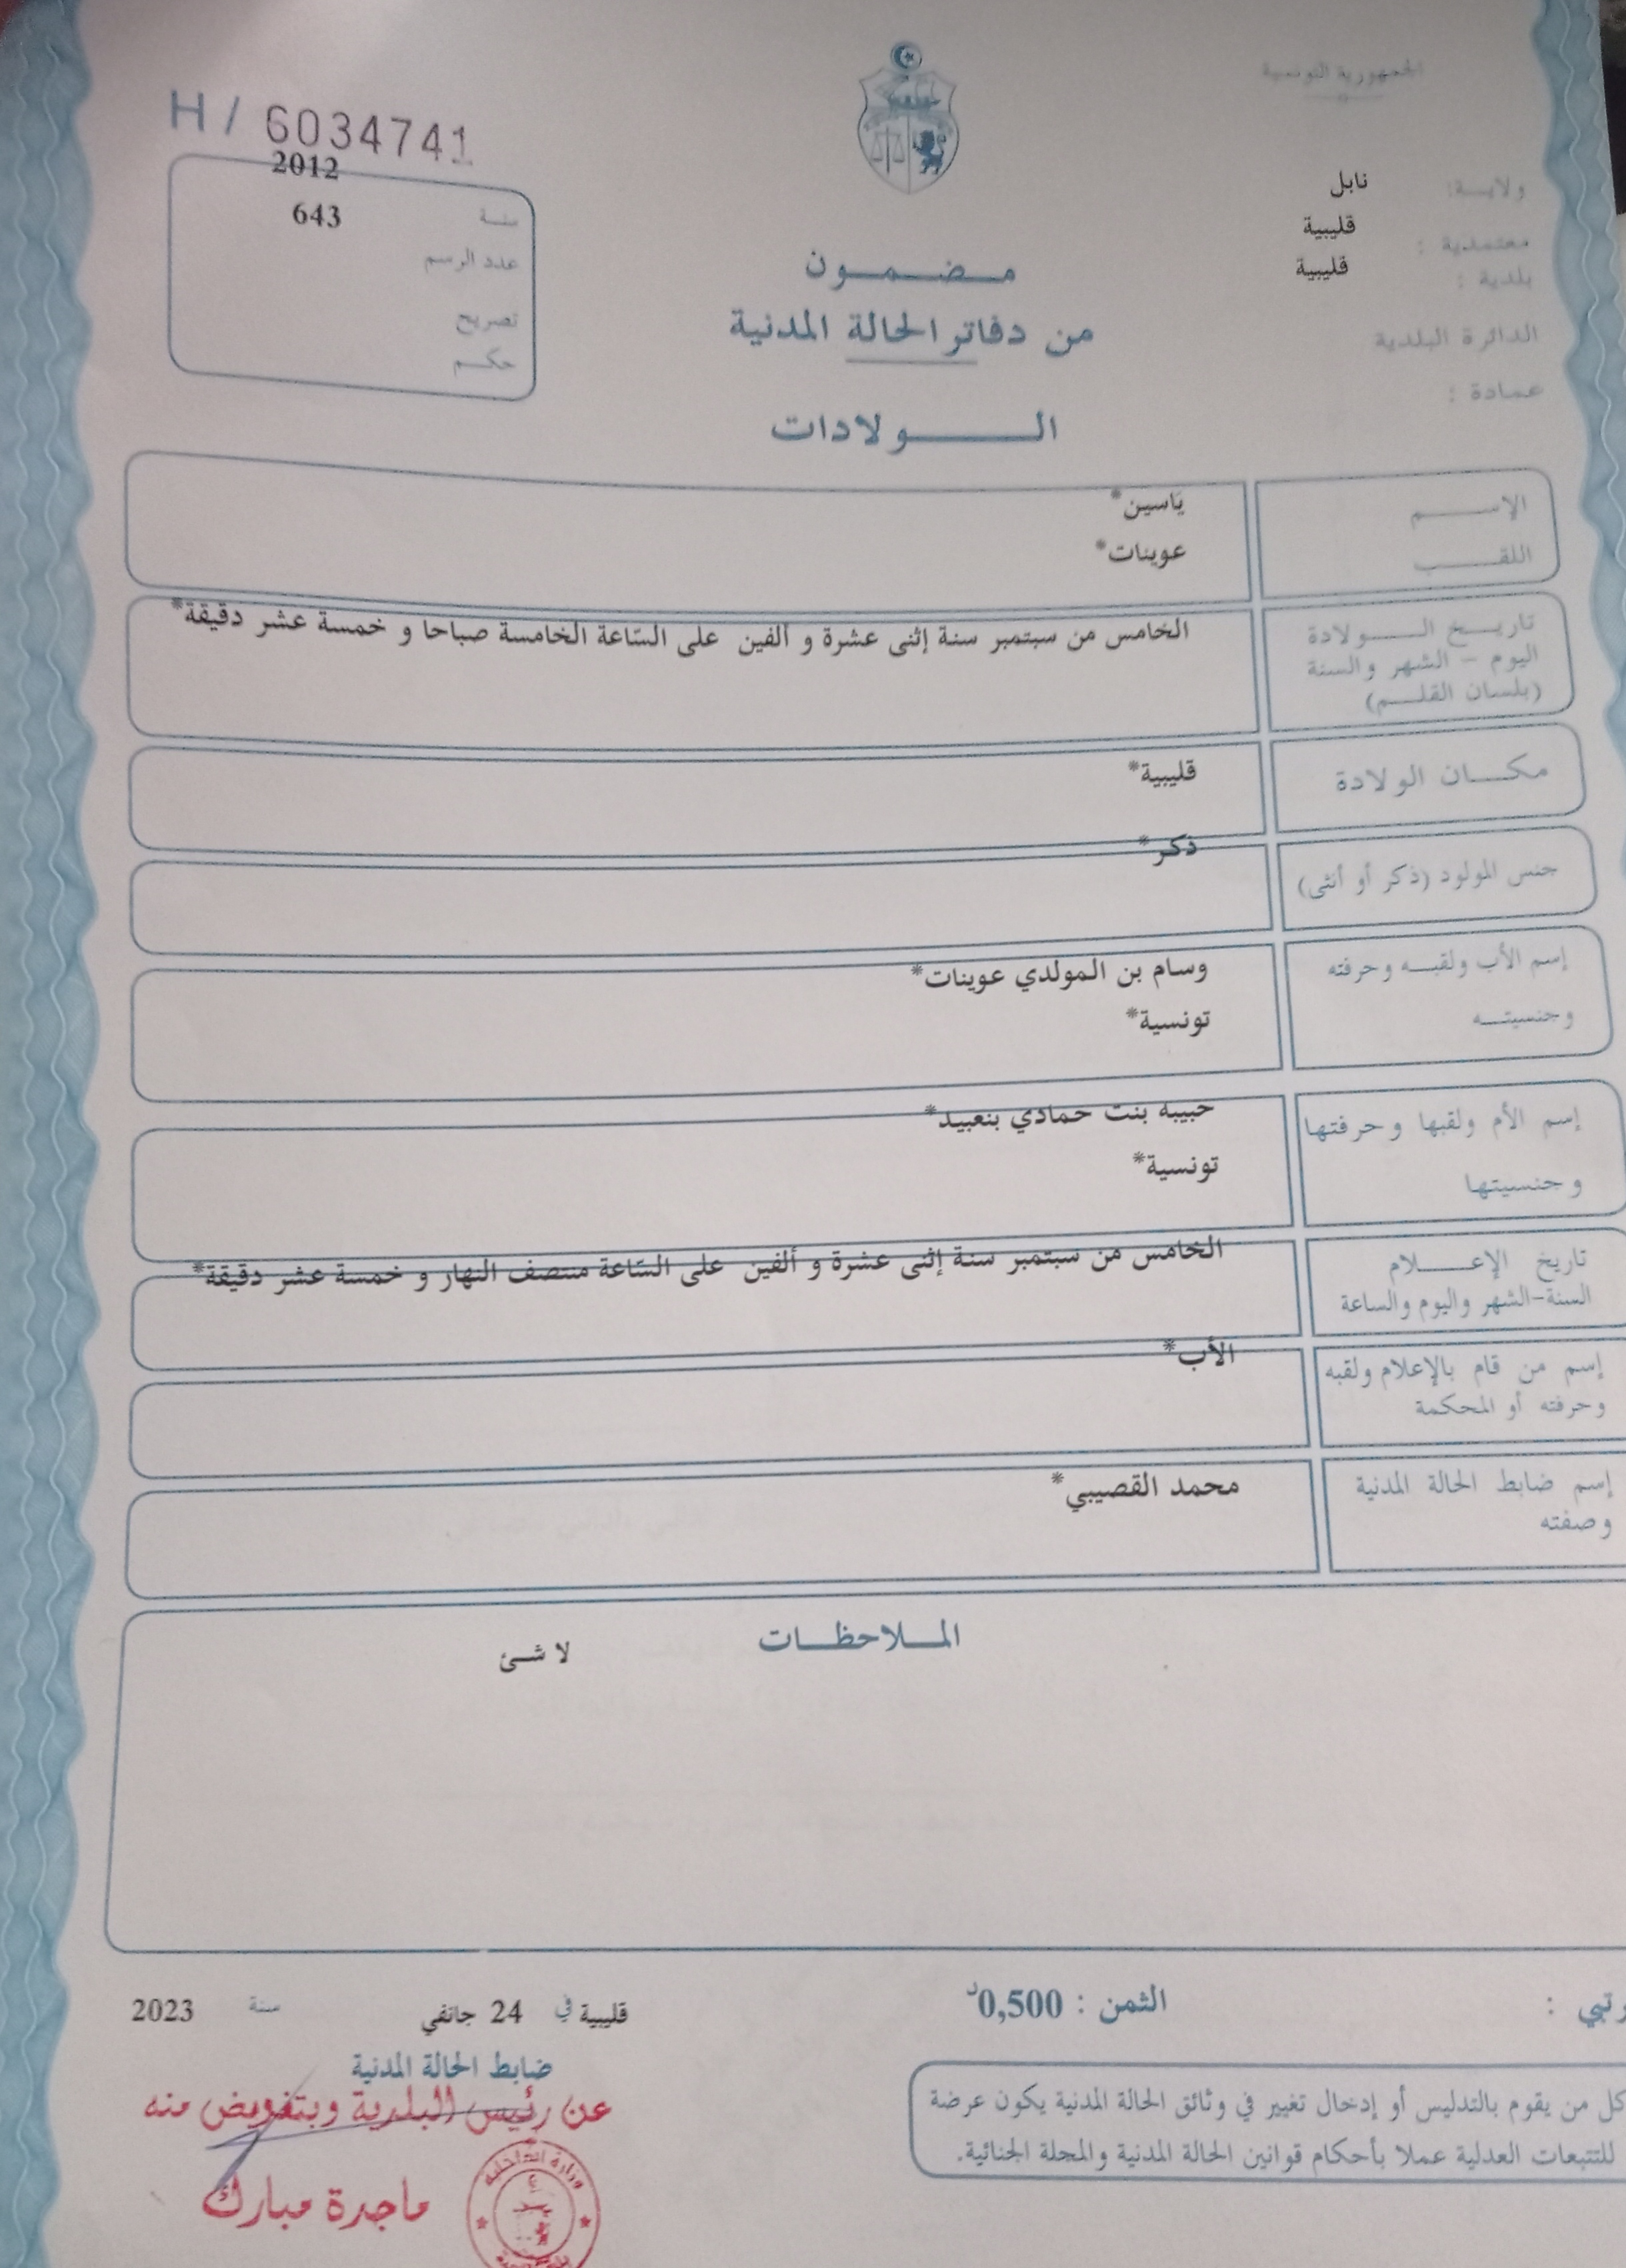 الجمهورية التونسية
H / 6034741
ولايـــة: نابل
معتمدية : قليبية
بلدية : قليبية
الدائرة البلدية
عمـادة :
2012
سنـة 643
عدد الرسم
تصريح
حكـم
مـــضـــمـــون
من دفاتر الحالة المدنية
الـــــــولادات
الإســـــم ياسين*
اللقـــــب عوينات*
تاريـــخ الـــــولادة الخامس من سبتمبر سنة إثنى عشرة و ألفين على السّاعة الخامسة صباحا و خمسة عشر دقيقة*
اليوم - الشهر والسنة
(بلسان القلـــم)
مكـــان الولادة قليبية*
جنس المولود (ذكر أو أنثى) ذكر*
إسم الأب ولقبـــه وحرفته وسام بن المولدي عوينات*
وجنسيتـــه تونسية*
إسم الأم ولقبها وحرفتها حبيبه بنت حمادي بنعبيد*
وجنسيتها تونسية*
تاريخ الإعـــــلام الخامس من سبتمبر سنة إثنى عشرة و ألفين على السّاعة منتصف النهار و خمسة عشر دقيقة*
السنة-الشهر واليوم والساعة
إسم من قام بالإعلام ولقبه الأب*
وحرفته أو المحكمة
إسم ضابط الحالة المدنية محمد القصيبي*
وصفته
المـــلاحظـــات
لا شـئ
رتبي :
الثمن : 0,500د
قليبية في 24 جانفي سنة 2023
ضابط الحالة المدنية
عن رئيس البلدية وبتفويض منه
ماجدة مبارك
وزارة الداخلية
كل من يقوم بالتدليس أو إدخال تغيير في وثائق الحالة المدنية يكون عرضة
للتتبعات العدلية عملا بأحكام قوانين الحالة المدنية والمجلة الجنائية.